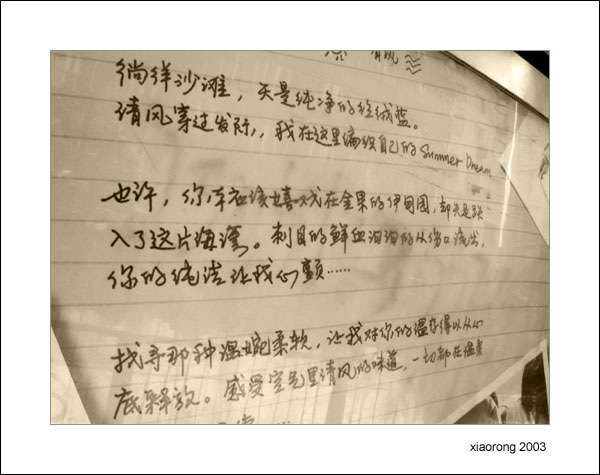 清风
徜徉沙滩，天是纯净的丝绒蓝。
清风穿过发际，我在这里编织自己的Summer Dream
也许，你本应该嬉戏在金果的伊甸园，却失足跌
入了这片海潭。刺目的鲜血汩汩的从伤口流出，
你的纯洁让我心颤……
找寻那种温婉柔软，让我对你的温存得以从心
底释放。感受空气里清风的味道，一切都在温柔
xiaorong 2003